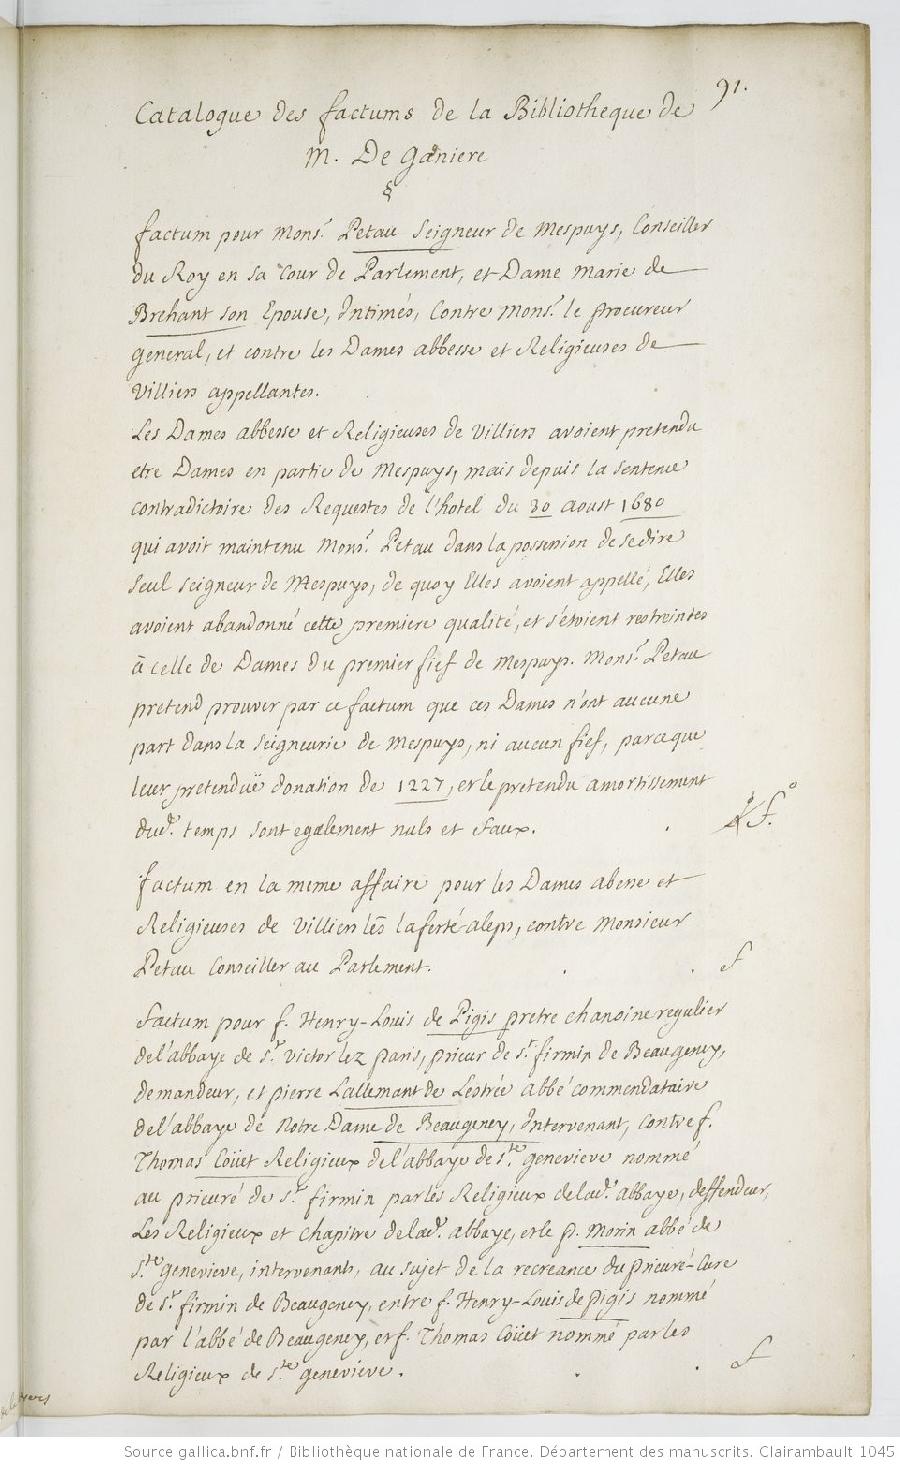 91.
Catalogue des factums de la Bibliotheque de
M. De Ganiere
§
factum pour Mons.r Petau Seigneur de Mespuys, Conseiller
du Roy en sa Cour de Parlement, et Dame Marie de
Brehant son Epouse, Intimés, Contre Mons.r le procureur
general, et contre les Dames abbesse et Religieuses de
Villiers appellantes.
Les Dames abbesse et Religieuses de Villiers avoient pretendu
etre Dames en partie de Mespuys, mais depuis la sentence
contradictoire des Requestes de l'hotel du 30 aoust 1680
qui avoit maintenu Mons.r Petau dans la possession de se dire
seul seigneur de Mespuys, de quoy Elles avoient appellé, Elles
avoient abandonné cette premiere qualité, et s'étoient restreintes
à celle de Dames du premier fief de Mespuys. Mons.r Petau
pretend prouver par ce factum que ces Dames n'ont aucune
part dans la Seigneurie de Mespuys, ni aucun fief, parceque
leur pretenduë donation de 1227, et le pretendu amortissement
dud.t temps sont egalement nuls et faux.
f.o
factum en la meme affaire pour les Dames abesse et
Religieuses de Villiers lès la ferté-aleps, contre Monsieur
Petau Conseiller au Parlement.
f
factum pour f. Henry-Louis de Pigis pretre chanoine regulier
de l'abbaye de S.t Victor lez paris, prieur de S.t firmin de Beaugency,
demandeur, et pierre Lallemant de Lestrée abbé commendataire
de l'abbaye de Notre Dame de Beaugency, Intervenant, contre f.
Thomas Coüet Religieux de l'abbaye de S.te genevieve nommé
au prieuré de S.t firmin par les Religieux de lad.t abbaye, deffendeur,
Les Religieux et chapitre de lad.t abbaye, et le p. Morin abbé de
S.te genevieve, intervenants, au sujet de la recreance du prieuré-Cure
de S.t firmin de Beaugency, entre f. Henry-Louis de pigis nommé
par l'abbé de Beaugency, et f. Thomas Coüet nommé par les
Religieux de S.te genevieve.
f
Source gallica.bnf.fr / Bibliothèque nationale de France. Département des manuscrits. Clairambault 1045